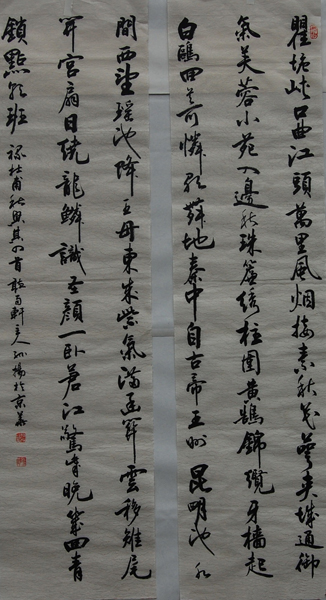 瞿塘峽口曲江頭萬里風烟接素秋花萼夾城通御
氣芙蓉小苑入邊愁珠簾繡柱圍黃鵠錦纜牙檣起
白鷗回首可憐歌舞地秦中自古帝王州昆明池水
間西望瑤池降王母東來紫氣滿函關雲移雉尾
開宮扇日繞龍鱗識聖顏一臥蒼江驚歲晚幾回青
鎖點朝班 杜甫秋興其四首 軒主人 於京華